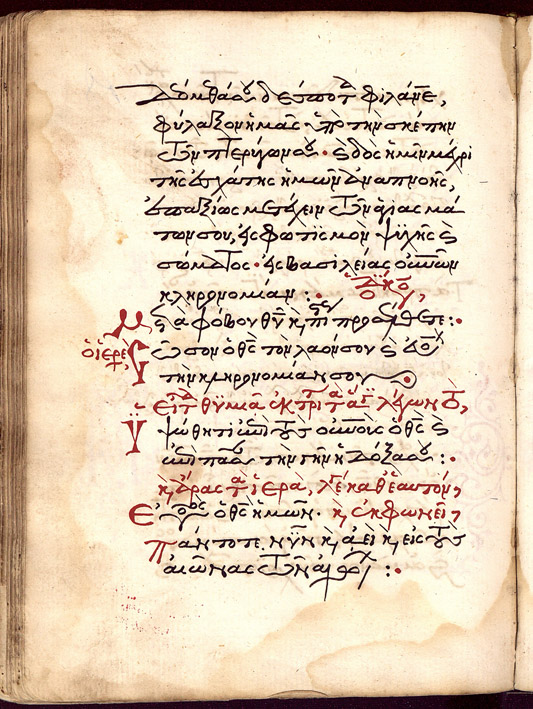 δέσποτα φιλάνε,
φύλαξον ἡμᾶς ὑπὸ τὴν σκέπην
τῶν πτερύγων σου. καὶ δὸς ἡμῖν μέχρι
τῆς ἐσχάτης ἡμῶν ἀναπνοῆς,
ἐπαξίως μετέχειν τῶν ἁγιασμά
των σου, εἰς φωτισμὸν ψυχῆς καὶ
σώματος. εἰς βασιλείας οὐνῶν
κληρονομίαν :. ὁ διάκο,
Μετὰ φόβου θυ κ, πίστε προσέλθετε :.
ὁ ἱερε, Σῶσον ὁ θς τὸν λαόν σου καὶ εὐλό
τὴν κληρονομίαν σου
Εἶτ θυμιᾶ ἐκ τρίτ τὰ ἅγ λέγων οὕτ,
Ὑψώθητι ἐπὶ τοὺς οὐνοὺς ὁ θς καὶ
ἐπὶ πᾶσ τὴν γῆν ἡ δόξα σου :.
κ, ἄρας τὰ ἱερὰ, λέγ καθ ἑαυτόν,
Εὐλογητὸς ὁ θς ἡμῶν. κ, ἐκφωνεῖ,
Πάντοτε νῦν κ, ἀεὶ κ, εἰς τοὺς
αἰῶνας τῶν αἰώ :.